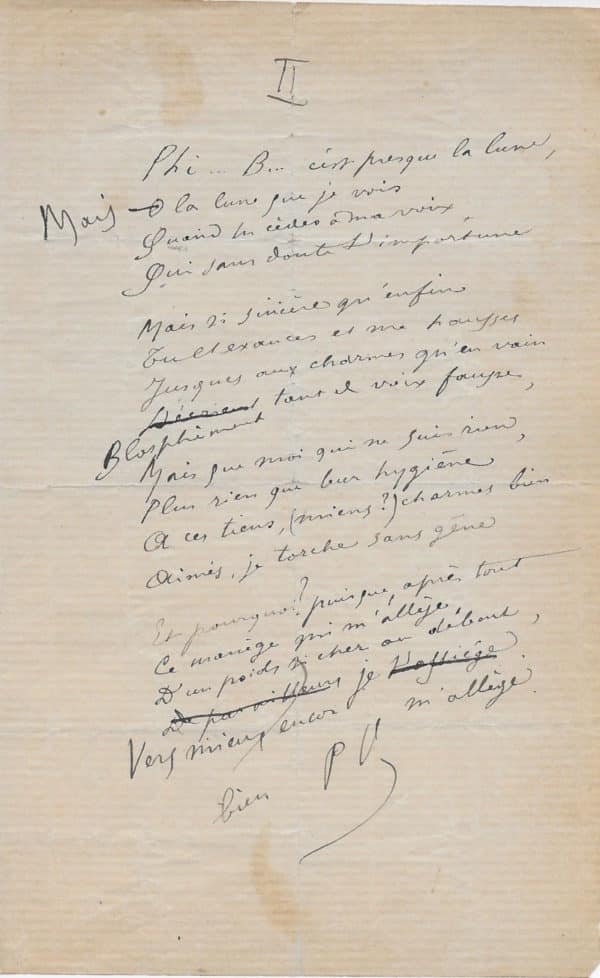 II
Phi... B... c'est presque la lune,
Mais O la lune que je vois
Quand tu cèdes à ma voix
Qui sans doute t'importune
Mais si sincère qu'enfin
Tu l'exauces et me hausses
Jusques aux charmes qu'en vain
Blasphèment tant de voix fausses,
Mais que moi qui ne suis rien,
Plus rien que leur hygiène
A ces tiens, (miens?) charmes bien
Aimés, je torche sans gêne
Et pourquoi? puisque, après tout
Ce manège qui m'allège
D'un poids si cher au débout,
D par ailleurs je
Vers mieux encor m'allège.
bien P V